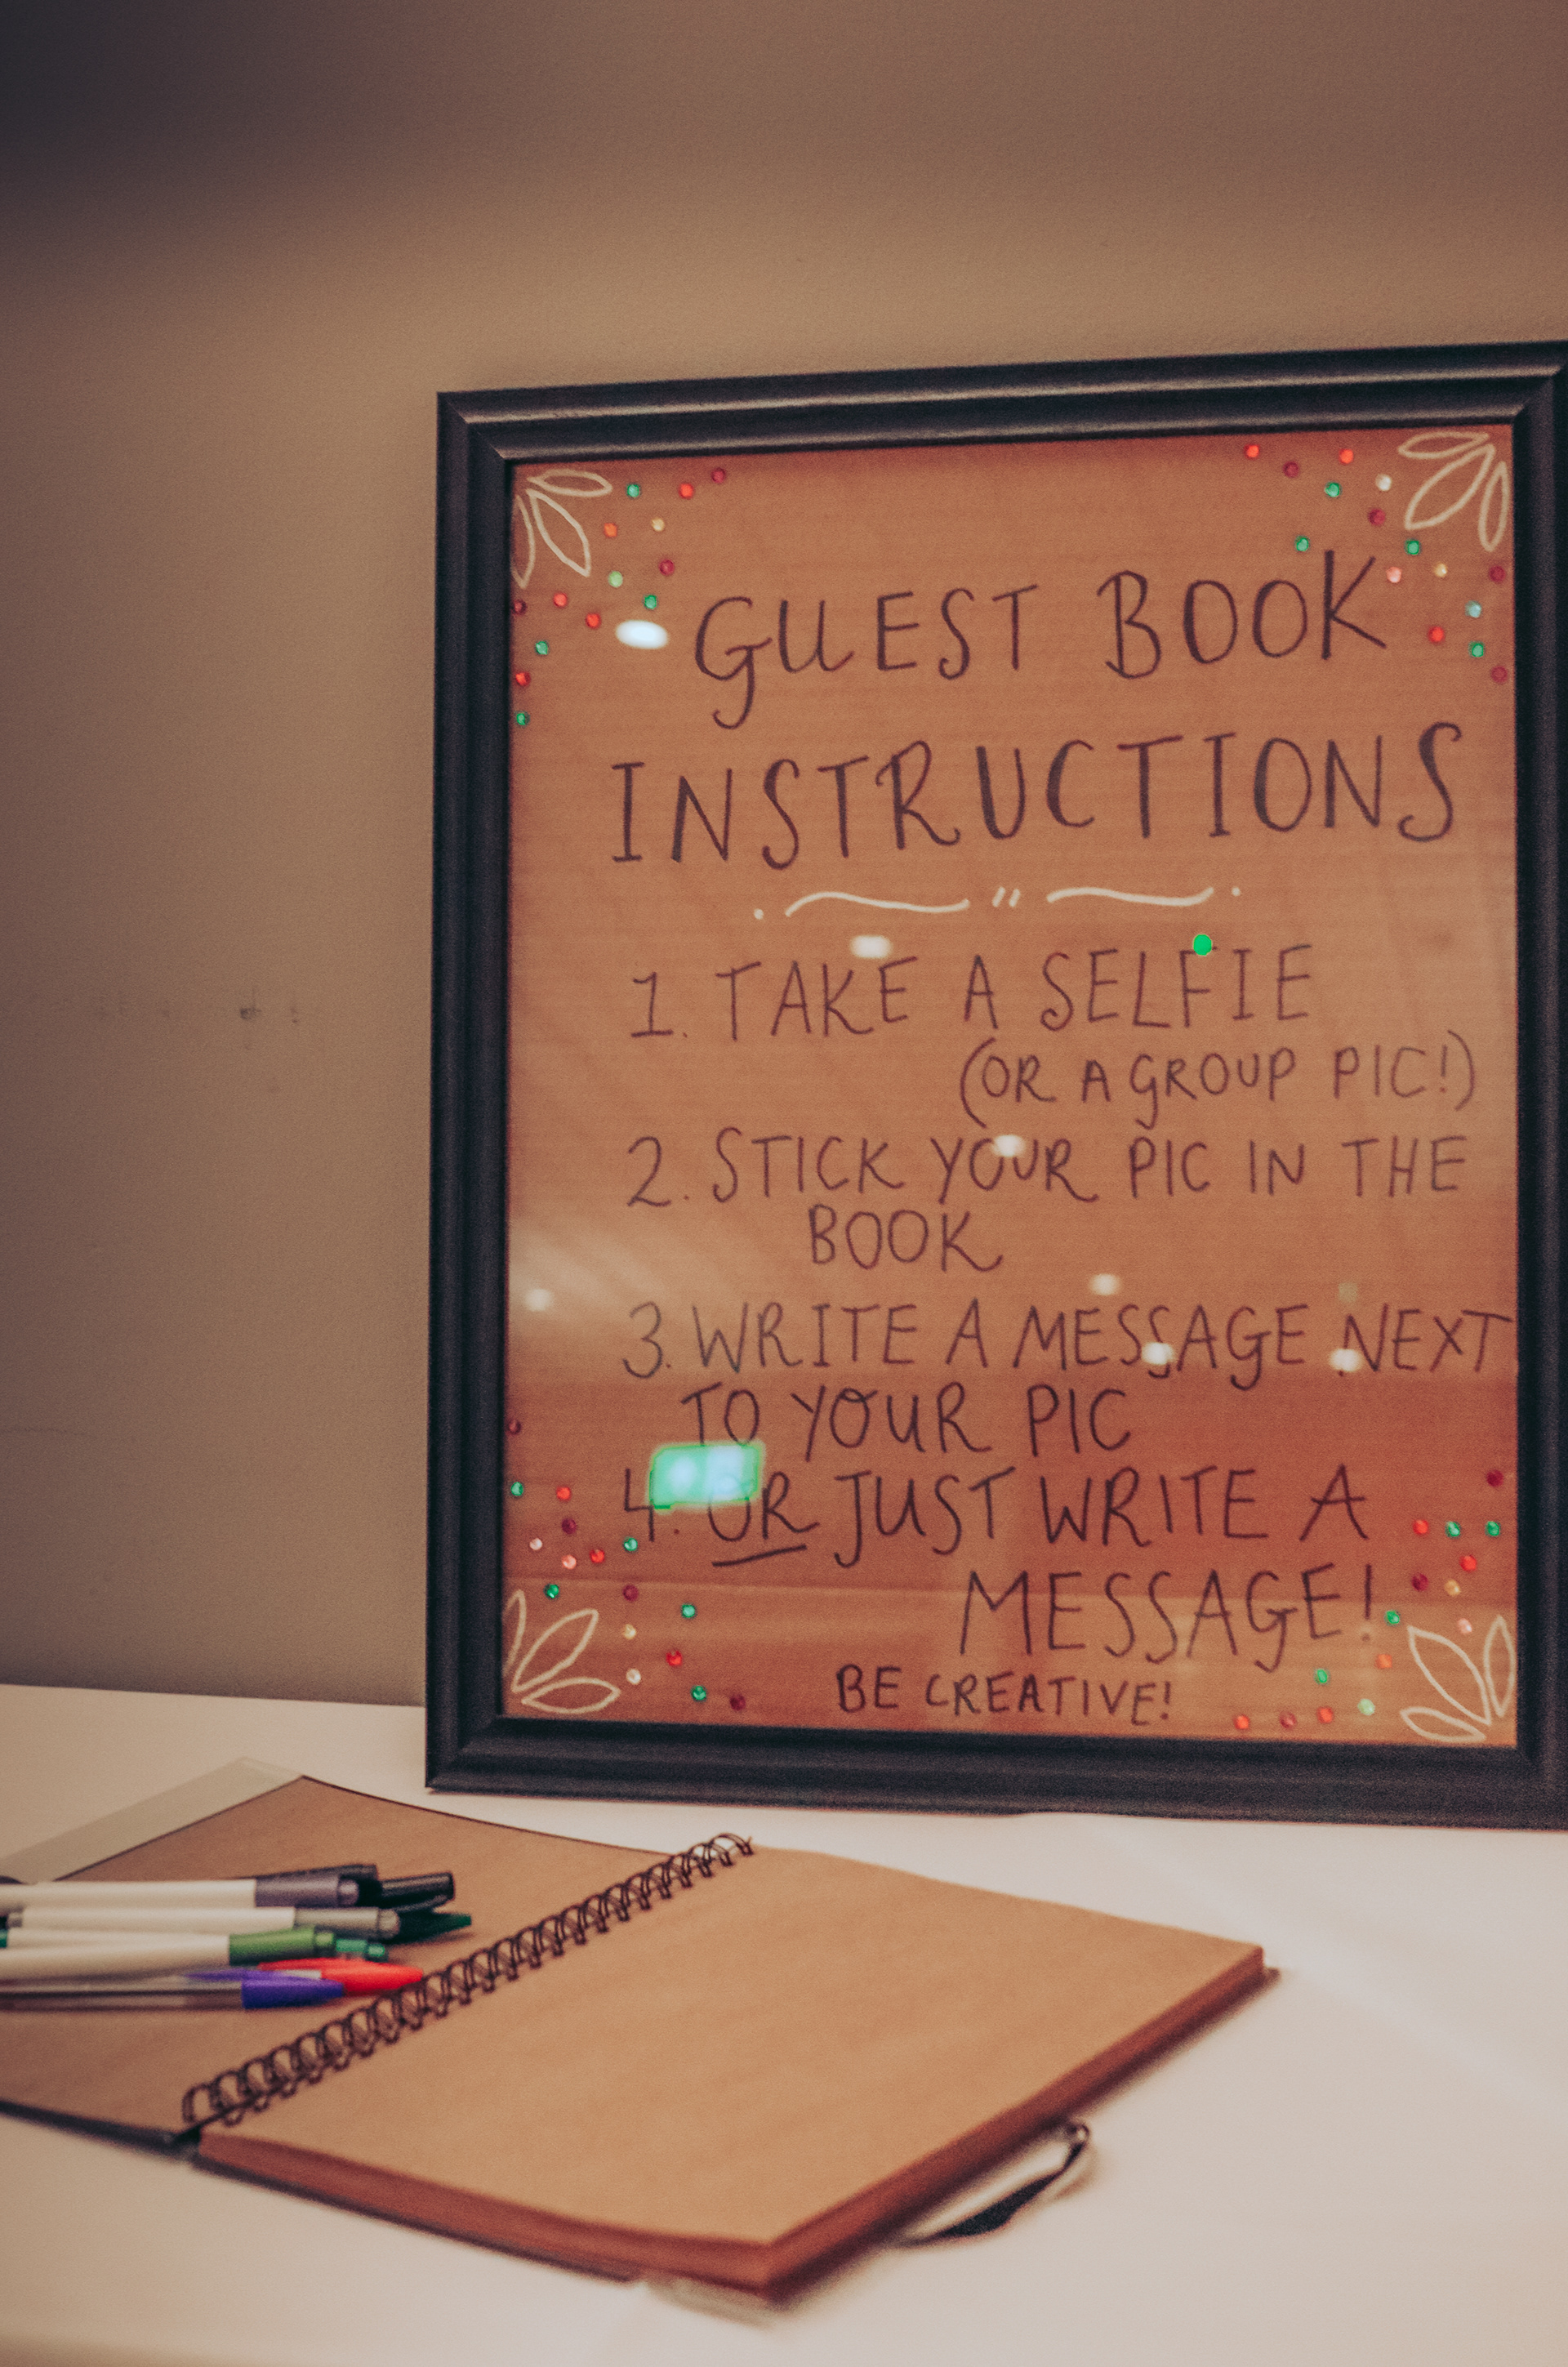 GUEST BOOK
INSTRUCTIONS
1. TAKE A SELFIE
(OR A GROUP PIC!)
2. STICK YOUR PIC IN THE
BOOK
3. WRITE A MESSAGE NEXT
TO YOUR PIC
4. OR JUST WRITE A
MESSAGE!
BE CREATIVE!